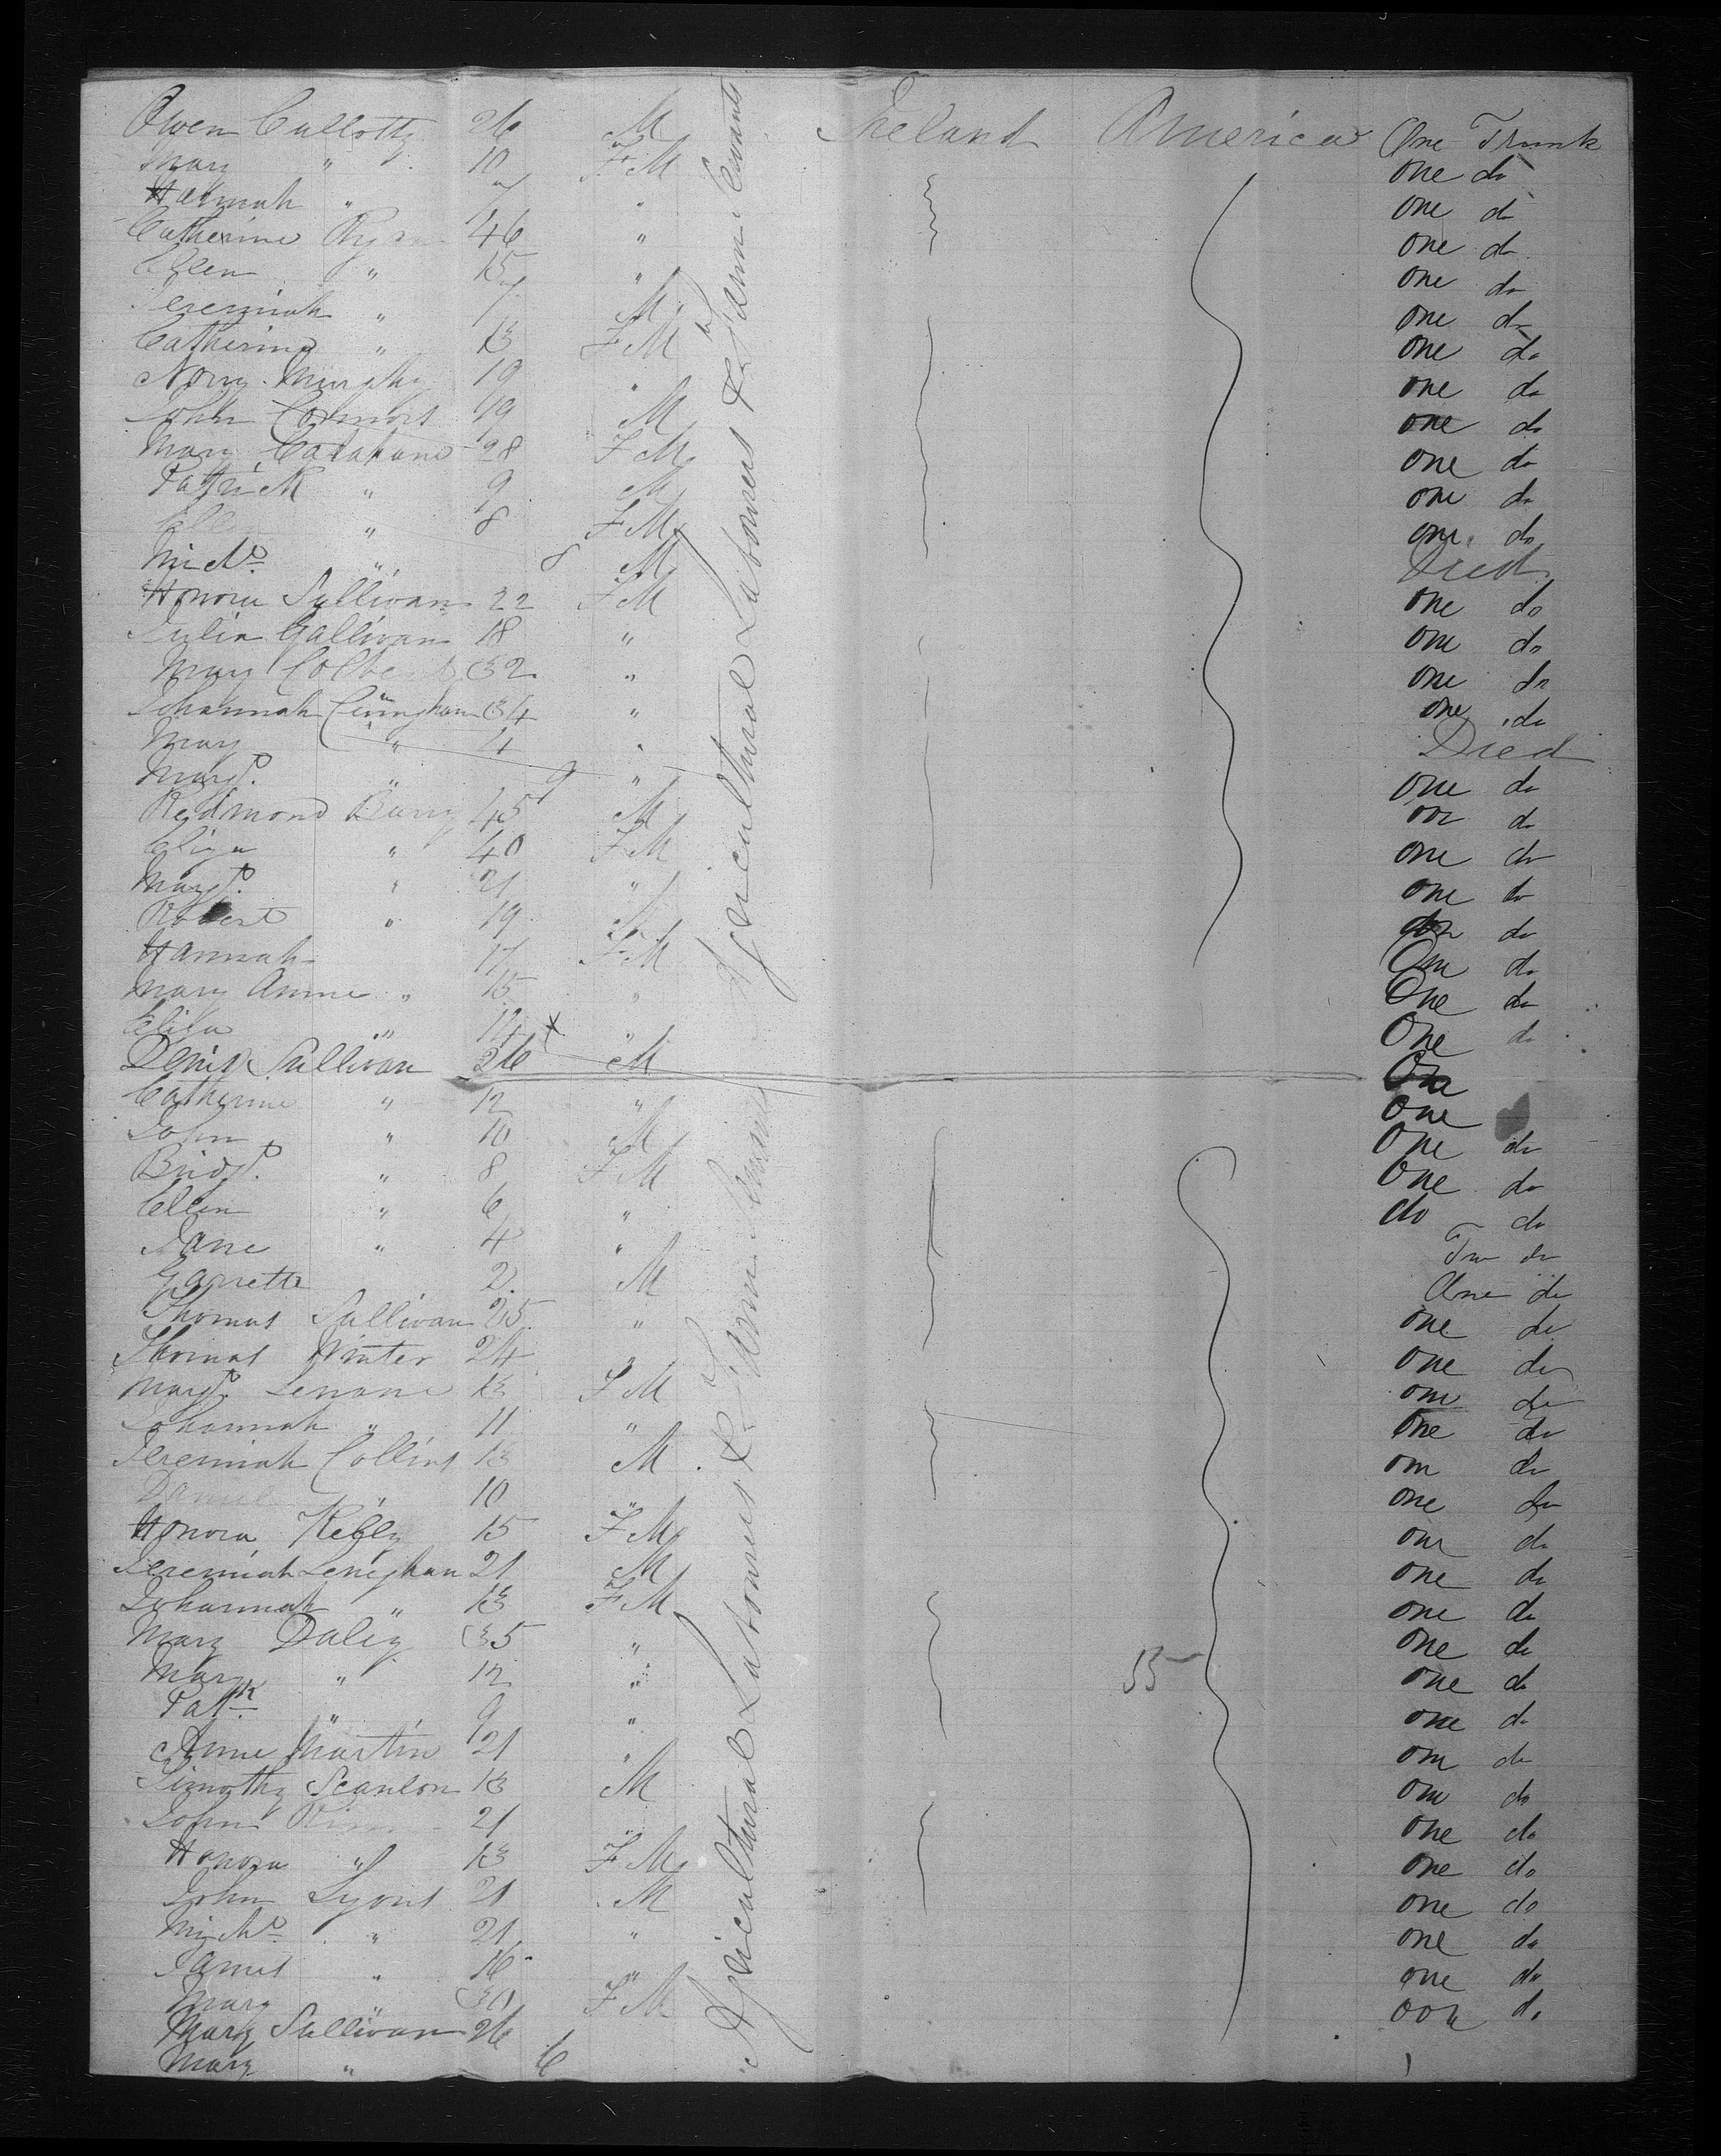 Owen Callotty 26 M Ireland America One Trunk
Mary " 10 FM one do
Hannah " 7 " one do
Catherine Ryan 46 " one do
Ellen " 15 " one do
Jeremiah " 7 M one do
Catherine " 13 FM one do
Nory Murphy 19 " one do
John Connors 49 M one do
Mary Carahane 28 FM one do
Patrick " 9 M one do
Ellen " 8 FM one do
Michl " 8 M Died
Honora Sullivan 22 FM one do
Julia Gallivan 18 " one do
Mary Colbert 32 " one do
Johannah Cuningham 34 " one do
Mary " 4 " Died
Margt " 9 " one do
Redmond Barry 45 M one do
Eliza " 40 FM one do
Margt " 21 " one do
Robert " 19 M do
Hannah 17 FM One do
Mary Anne " 15 " One do
Eliza " 14 " One do
Denis Sullivan 26 M One
Catherine " 12 " One
John " 10 M One do
Bridgt " 8 FM One do
Ellen " 6 " do do
Jane " 4 " Two do
Garrett 2 M One do
Thomas Sullivan 25 " one do
Thomas Winter 24 " one do
Margt Lenane 13 FM one do
Johannah " 11 " One do
Jeremiah Collins 13 M one do
Daniel " 10 " one do
Honora Kelly 15 FM one do
Jeremiah Lenighan 21 M one do
Johannah " 13 FM one do
Mary Daley 35 " one do
Mary " 12 " 55 one do
Patk " 9 " one do
Anne Martin 21 " one do
Timothy Scanlon 13 M one do
John 21 " one do
Honora " 13 FM one do
John Lyons 21 M one do
Michl " 21 " one do
James " 16 " one do
Mary 30 FM oon do
Mary Sullivan 26
Mary " 6
Agricultural Labourers & Farm Servants
Agricultural Labourers & Farm Servants